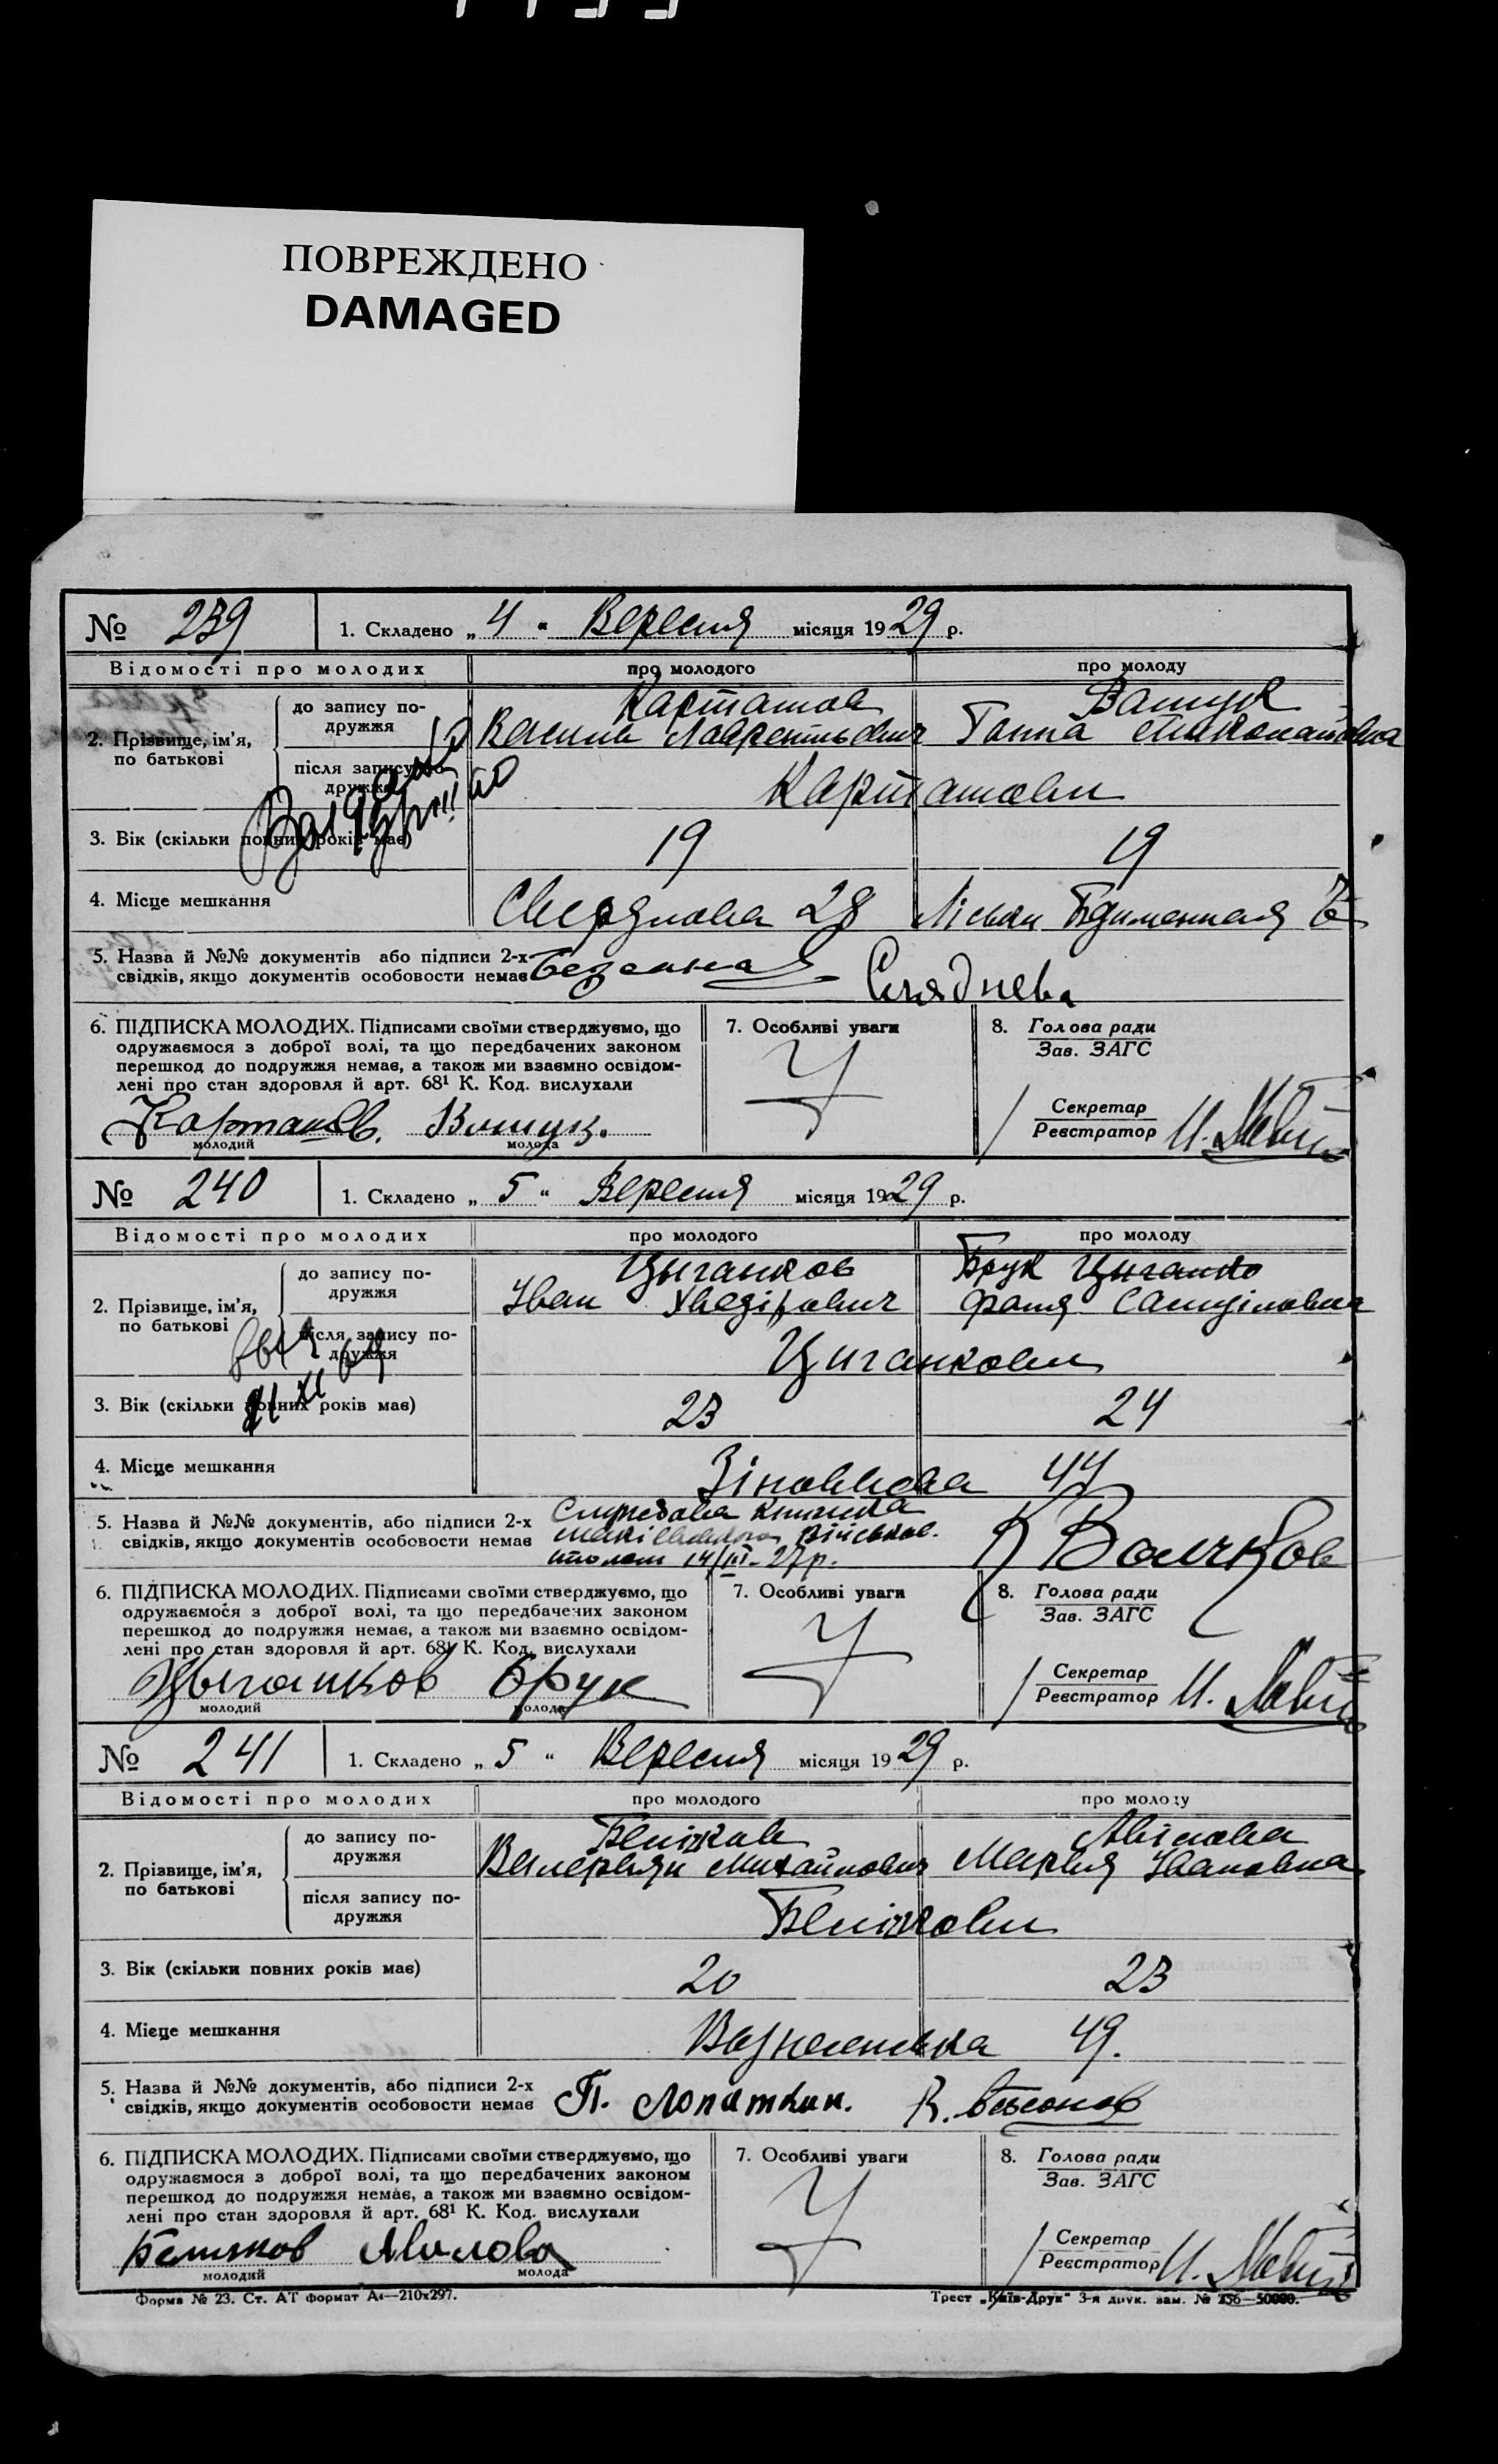 ПОВРЕЖДЕНО
DAMAGED
№ 239 1. Складено „ 4 “ Вересня місяця 1929 р.
Відомості про молодих про молодого про молоду
2. Прізвище, ім’я, по батькові
до запису подружжя
Карташов Ващук
Василь Лаврентьович Ганна Миколаївна
після запису подружжя
Карташови
3. Вік (скільки повних років має) 19 19
4. Місце мешкання Свердлова 28
5. Назва й №№ документів або підписи 2-х
свідків, якщо документів особовости немає
6. ПІДПИСКА МОЛОДИХ. Підписами своїми стверджуємо, що
одружаємося з доброї волі, та що передбачених законом
перешкод до подружжя немає, а також ми взаємно освідом-
лені про стан здоровля й арт. 68¹ К. Код. вислухали
Карташов. Ващук.
молодий молода
7. Особливі уваги
8. Голова ради
Зав. ЗАГС
Секретар
Реєстратор
№ 240 1. Складено „ 5 “ Вересня місяця 1929 р.
Відомості про молодих про молодого про молоду
2. Прізвище, ім’я, по батькові
до запису по-
дружжя
Циганков Брук
Іван Хведірович Фаня
після запису по-
дружжя
Циганкови
3. Вік (скільки повних років має) 23 24
4. Місце мешкання Зіновʼєва 44
5. Назва й №№ документів, або підписи 2-х
свідків, якщо документів особовости немає
Службова книжка
Військов.
столом 14/III-27 р.
6. ПІДПИСКА МОЛОДИХ. Підписами своїми стверджуємо, що
одружаємося з доброї волі, та що передбачених законом
перешкод до подружжя немає, а також ми взаємно освідом-
лені про стан здоровля й арт. 68¹ К. Код. вислухали
Цыганков Брук
молодий молода
7. Особливі уваги
8. Голова ради
Зав. ЗАГС
Секретар
Реєстратор
№ 241 1. Складено „ 5 “ Вересня місяця 1929 р.
Відомості про молодих про молодого про молоду
2. Прізвище, ім’я, по батькові
до запису по-
дружжя
Беліжов Авілова
Валерьян Михайлович Мария Івановна
після запису по-
дружжя
3. Вік (скільки повних років має) 20 23
4. Місце мешкання Вознесенська 49.
5. Назва й №№ документів, або підписи 2-х
свідків, якщо документів особовости немає
П. Лопаткин.
6. ПІДПИСКА МОЛОДИХ. Підписами своїми стверджуємо, що
одружаємося з доброї волі, та що передбачених законом
перешкод до подружжя немає, а також ми взаємно освідом-
лені про стан здоровля й арт. 68¹ К. Код. вислухали
молодий молода
7. Особливі уваги
8. Голова ради
Зав. ЗАГС
Секретар
Реєстратор
Форма № 23. Ст. АТ формат А₄—210х297.
Трест „Київ-Друк“ 3-я друк. зам. №